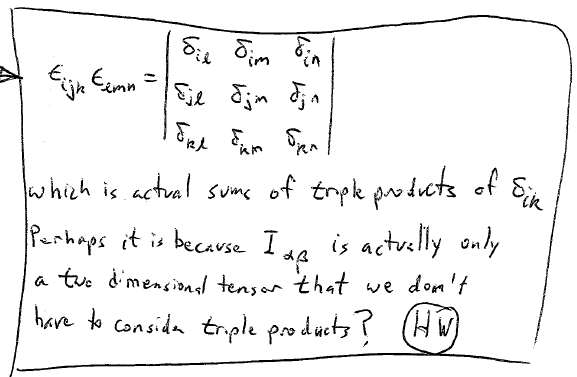 ϵ_ijk ϵ_lmn = | δ_il δ_im δ_in |
| δ_jl δ_jm δ_jn |
| δ_kl δ_km δ_kn |
which is actual sums of triple products of δ_ik
Perhaps it is because I_αβ is actually only
a two dimensional tensor that we don't
have to consider triple products? HW